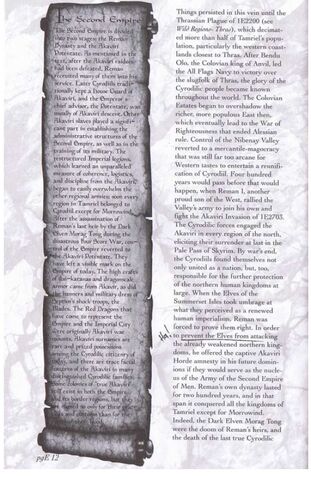 The Second Empire
The Second Empire is divided
into two stages the Reman
Dynasty and the Akaviri
Potentate. As mentioned in the
text, after the Akaviri raiders
had been defeated, Reman
recruited many of them into his
service. Later Cyrodiils tradi-
tionally kept a Dragon Guard of
Akaviri, and the Emperor's
chief advisor, the Potentate, was
usually of Akaviri descent. Other
Akaviri slaves played a signifi-
cant part in establishing the
administrative structures of the
Second Empire, as well as in the
training of its military. The
restructured Imperial legions,
which learned an unparalleled
measure of coherence, logistics,
and discipline from the Akaviri,
began to easily overwhelm the
other regional armies; soon every
region in Tamriel belonged to
Cyrodiil except for Morrowind.
After the assassination of
Reman's last heir by the Dark
Elven Morag Tong during the
disastrous Four Score War, con-
trol of the Empire reverted to
the Akaviri Potentate. They
have left a visible mark on the
Empire of today. The high crafts
of and dragonscale
armor came from Akavir, as did
the banners and military dress of
Septim's shock troops, the
Blades. The Red Dragons that
have come to represent the
Empire and the Imperial City
were originally Akaviri war
mounts. Akaviri surnames are
rare and prized possessions
among the Cyrodilic citizenry of
today, and there are trace facial
features of the Akaviri in many
distinguished Cyrodilic families.
Some colonies of 'true Akaviri'
still exist in both the Empire
and its border regions, but they
are named so only for their prac-
tices and customs than for
pgE 12
Things persisted in this vein until the
Thrassian Plague of 1E2200 (see
Wild Regions- Thras), which decimat-
ed more than half of Tamriel's popu-
lation, particularly the western coast-
lands closest to Thras. After Bendu
Olo, the Colovian king of Anvil, led
the All Flags Navy to victory over
the slugfolk of Thras, the glory of the
Cyrodilic people became known
throughout the world. The Colovian
Estates began to overshadow the
richer, more populous East then,
which eventually lead to the War of
Righteousness that ended Alessian
rule. Control of the Nibenay Valley
reverted to a mercantile-magocracy
that was still far too arcane for
Western tastes to entertain a reunifi-
cation of Cyrodiil. Four hundred
years would pass before that would
happen, when Reman I, another
proud son of the West, rallied the
Valley's army to join his own and
fight the Akaviri Invasion of 1E2703.
The Cyrodilic forces engaged the
Akaviri in every region of the north,
eliciting their surrender at last in the
Pale Pass of Skyrim. By war's end,
the Cyrodiils found themselves not
only united as a nation, but, too,
responsible for the further protection
of the northern human kingdoms at
large. When the Elves of the
Summerset Isles took umbrage at
what they perceived as a renewed
human imperialism, Reman was
forced to prove them right. In order
ha!
to prevent the Elves from attacking
the already weakened northern king-
doms, he offered the captive Akaviri
Horde amnesty in his future domin-
ions if they would serve as the nucle-
us of the Army of the Second Empire
of Men. Reman's own dynasty lasted
for two hundred years, and in that
span it conquered all the kingdoms of
Tamriel except for Morrowind.
Indeed, the Dark Elven Morag Tong
were the doom of Reman's heirs, and
the death of the last true Cyrodilic